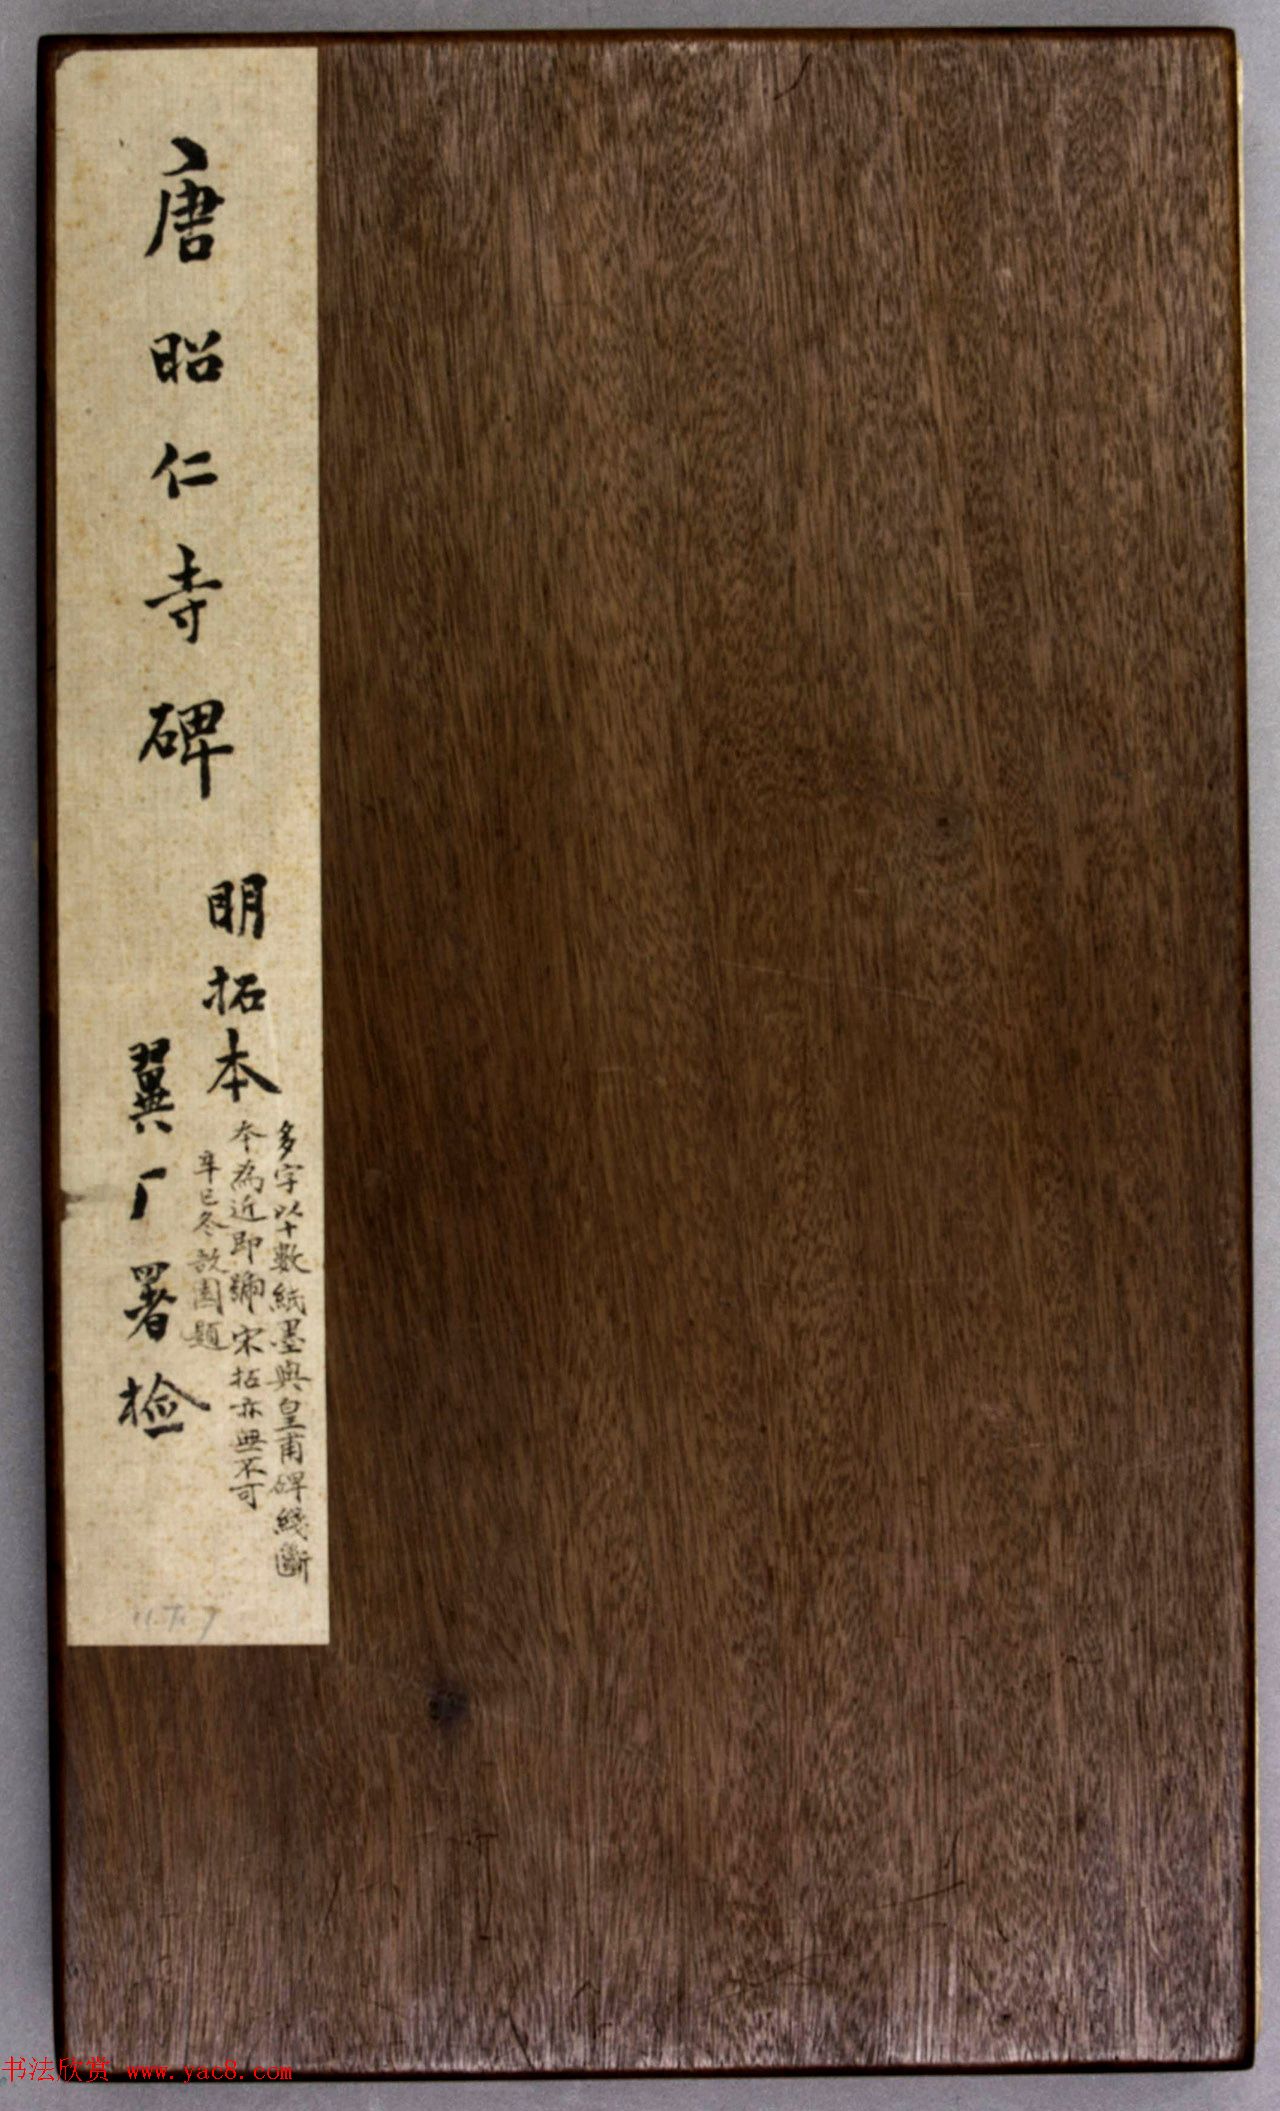 唐昭仁寺碑
明拓本
多字以十數紙墨與皇甫碑綫斷
本為近即編宋拓亦無不可
辛巳冬敔園題
翼厂署檢
书法欣赏 www.yac8.com